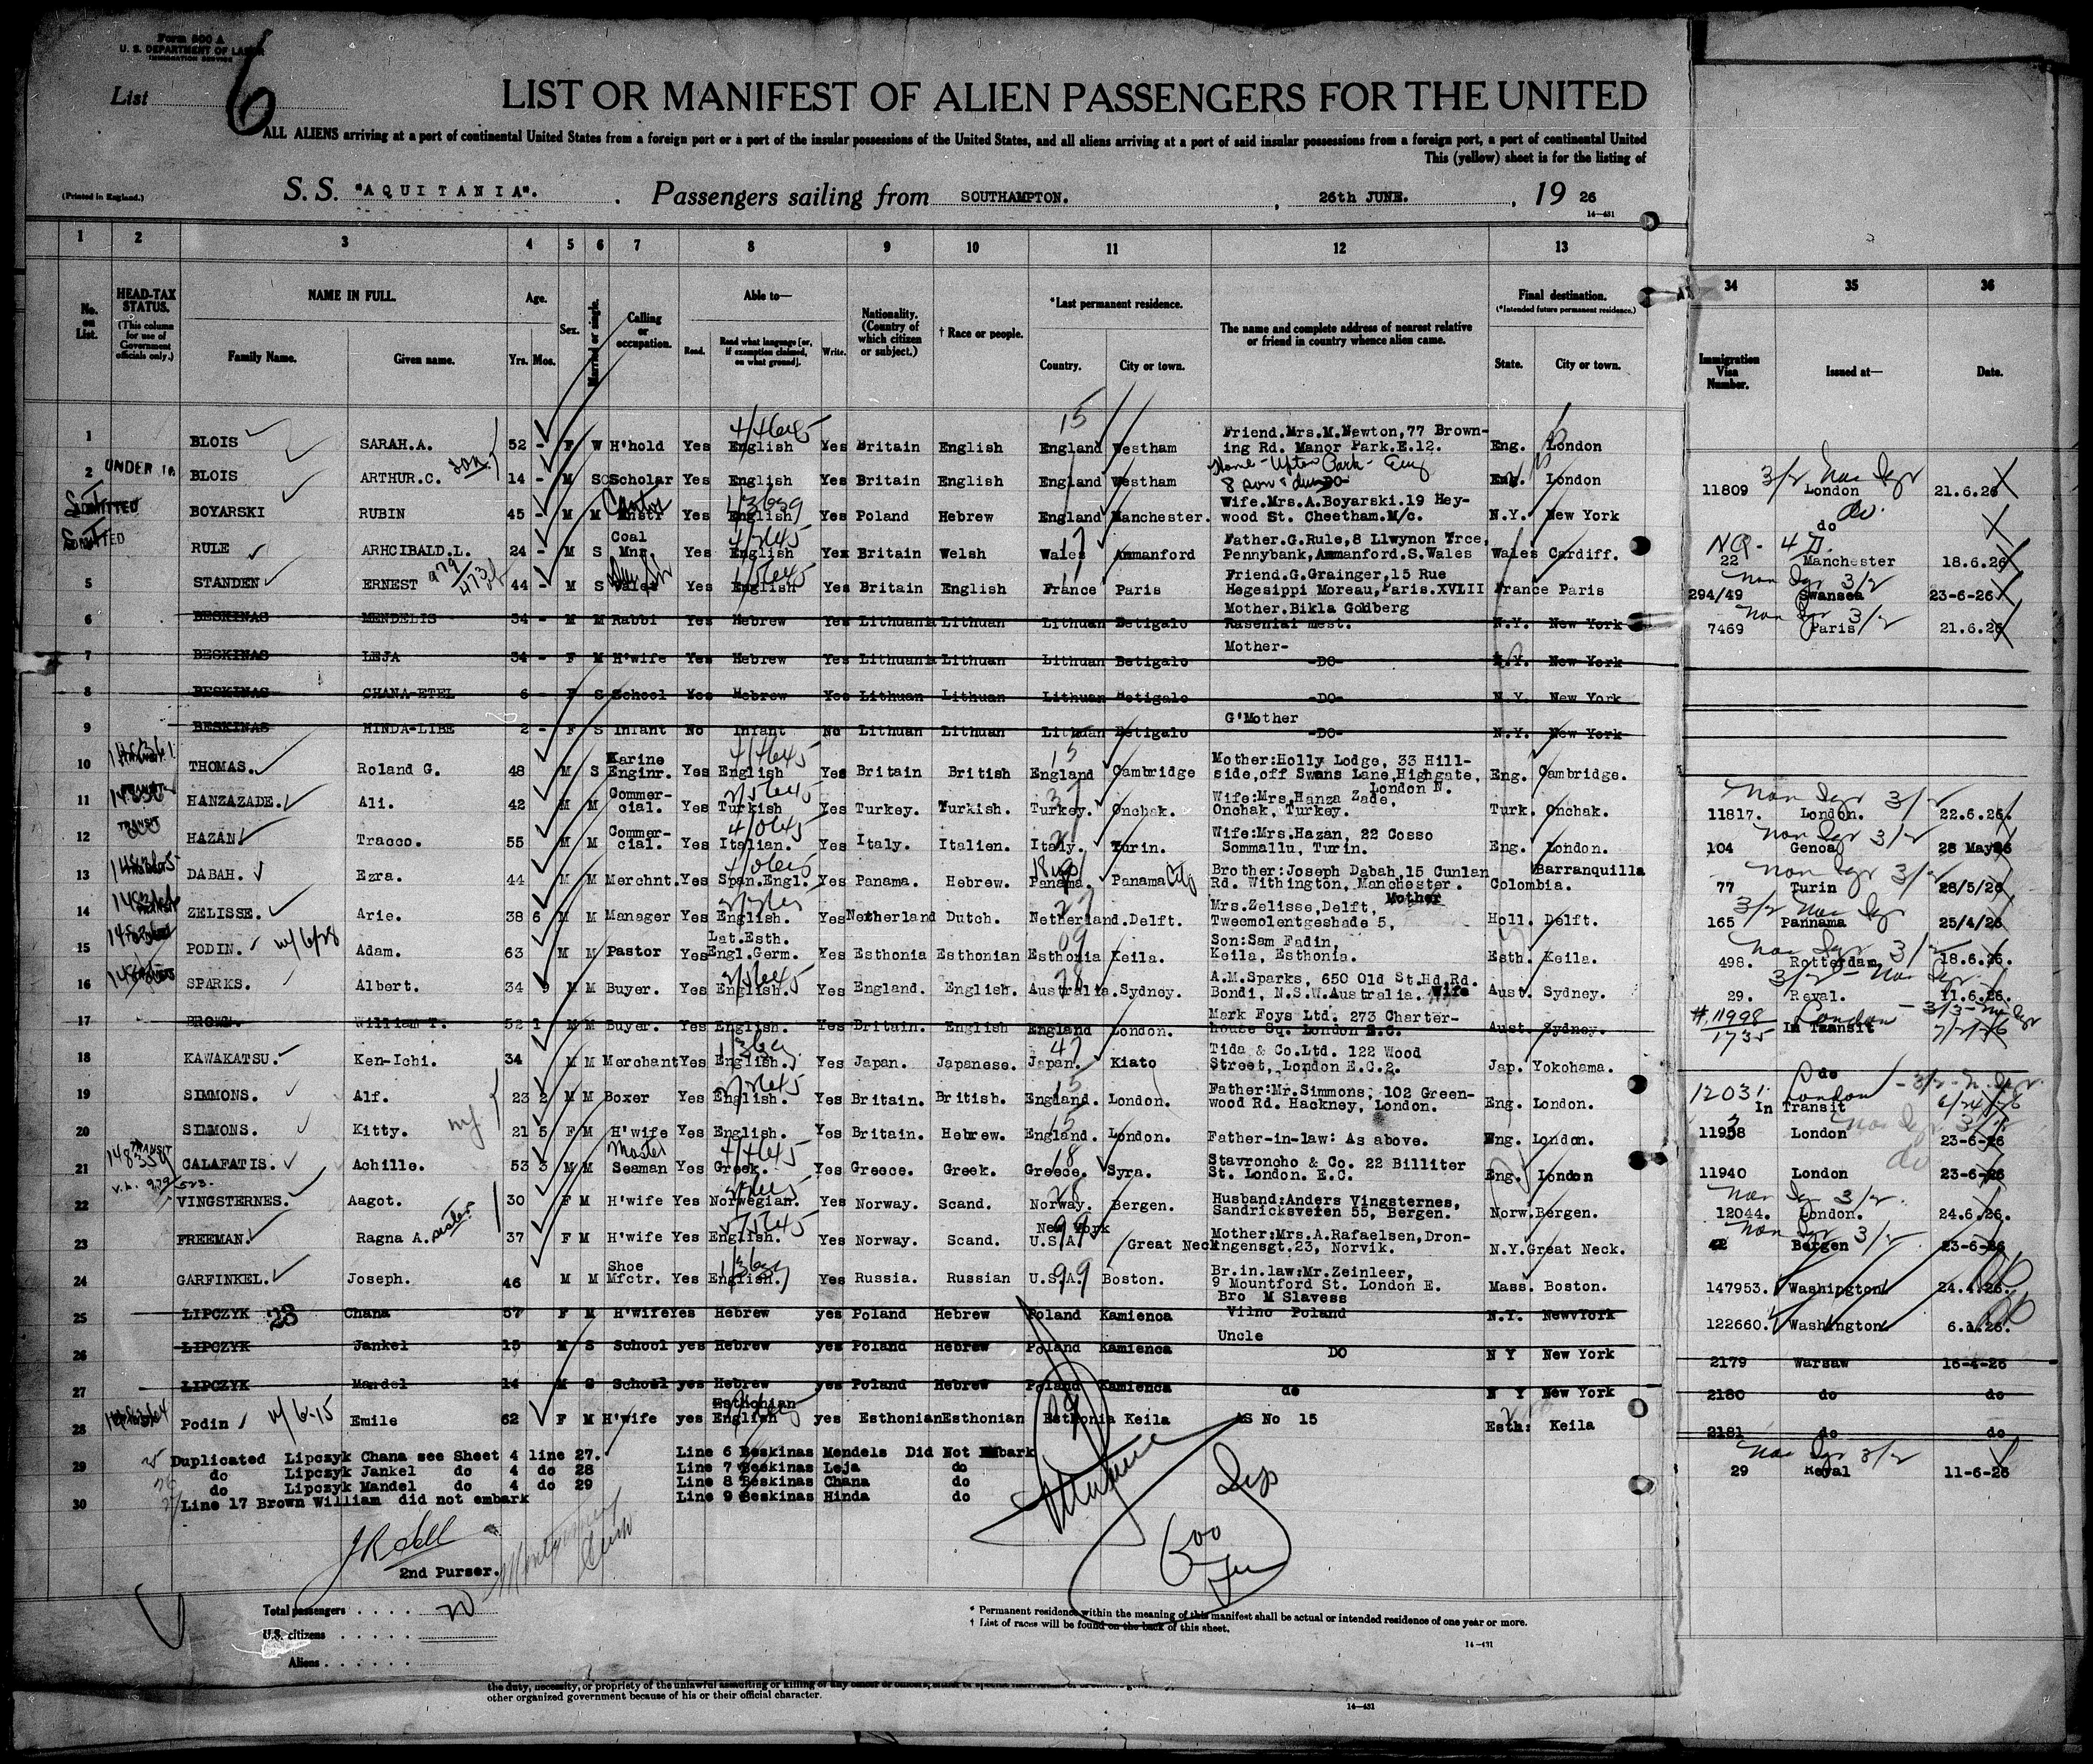 Form 500 A
U. S. DEPARTMENT OF LABOR
IMMIGRATION SERVICE
List 6
LIST OR MANIFEST OF ALIEN PASSENGERS FOR THE UNITED
ALL ALIENS arriving at a port of continental United States from a foreign port or a port of the insular possessions of the United States, and all aliens arriving at a port of said insular possessions from a foreign port, a port of continental United
This (yellow) sheet is for the listing of
(Printed in England.)
S. S. "AQUITANIA". Passengers sailing from SOUTHAMPTON. , 26th JUNE. , 19 26
14—431
1 2 3 4 5 6 7 8 9 10 11 12 13 34 35 36
No. on List. HEAD-TAX STATUS. (This column for use of Government officials only.) NAME IN FULL. Family Name. Given name. Age. Yrs. Mos. Sex. Married or single. Calling or occupation. Able to— Read. Read what language [or, if exemption claimed, on what ground]. Write. Nationality. (Country of which citizen or subject.) † Race or people. *Last permanent residence. Country. City or town. The name and complete address of nearest relative or friend in country whence alien came. Final destination. (*Intended future permanent residence.) State. City or town. Immigration Visa Number. Issued at— Date.
1 BLOIS SARAH.A. 52 - F W H'hold Yes English Yes Britain English England Westham Friend.Mrs.M.Newton,77 Browning Rd. Manor Park.E.12. Eng. London
2 UNDER 16 BLOIS ARTHUR.C. son 14 - M S Scholar Yes English Yes Britain English England Westham -DO- Eng. London 11809 London 21.6.26
ADMITTED BOYARSKI RUBIN 45 - M M Cantor Yes English Yes Poland Hebrew England Manchester. Wife.Mrs.A.Boyarski.19 Heywood St. Cheetham.M/c. N.Y. New York do
ADMITTED RULE ARHCIBALD.L. 24 - M S Coal Mnr. Yes English Yes Britain Welsh Wales Ammanford Father.G.Rule,8 Llwynon Trce, Pennybank,Ammanford.S.Wales Wales Cardiff. 22 Manchester 18.6.26
5 STANDEN ERNEST 44 - M S Valet Yes English Yes Britain English France Paris Friend.G.Grainger,15 Rue Hegesippi Moreau,Paris.XVLII France Paris 294/49 Swansea 23-6-26
6 BESKINAS MENDELIS 34 - M M Rabbi Yes Hebrew Yes Lithuania Lithuan Lithuan Betigalo Mother.Bikla Goldberg Raseniai mest. N.Y. New York 7469 Paris 21.6.26
7 BESKINAS LEJA 34 - F M H'wife Yes Hebrew Yes Lithuania Lithuan Lithuan Betigalo Mother- -DO- N.Y. New York
8 BESKINAS CHANA-ETEL 6 - F S School Yes Hebrew Yes Lithuan Lithuan Lithuan Betigalo -DO- N.Y. New York
9 BESKINAS HINDA-LIBE 2 - F S Infant No Infant No Lithuan Lithuan Lithuan Betigalo G'Mother -DO- N.Y. New York
10 THOMAS. Roland G. 48 M S Marine Enginr. Yes English Yes Britain British England Cambridge Mother:Holly Lodge, 33 Hillside,off Swans Lane,Highgate, London N. Eng. Cambridge.
11 HANZAZADE. Ali. 42 M M Commercial. Yes Turkish Yes Turkey. Turkish. Turkey. Onchak. Wife:Mrs.Hanza Zade, Onchak, Turkey. Turk. Onchak. 11817. London. 22.6.26.
12 TRANSIT HAZAN Tracco. 55 M M Commercial. Yes Italian. Yes Italy. Italien. Italy. Turin. Wife:Mrs.Hazan, 22 Cosso Sommallu, Turin. Eng. London. 104 Genoa 28 May26
13 DABAH. Ezra. 44 M M Merchnt. Yes Span.Engl. Yes Panama. Hebrew. Panama. Panama City Brother:Joseph Dabah,15 Cunlan Rd. Withington, Manchester. Barranquilla Colombia. 77 Turin 28/5/26
14 ZELISSE. Arie. 38 6 M M Manager Yes English. Yes Netherland Dutch. Netherland. Delft. Mrs.Zelisse,Delft, Mother Tweemolentgeshade 5, Holl. Delft. 165 Pannama 25/4/26
15 PODIN. w/6/28 Adam. 63 M M Pastor Yes Lat.Esth. Engl.Germ. Yes Esthonia Esthonian Esthonia Keila. Son:Sam Fadin, Keila, Esthonia. Esth. Keila. 498. Rotterdam 18.6.26.
16 SPARKS. Albert. 34 9 M M Buyer. Yes English. Yes England. English. Australia. Sydney. A.M.Sparks, 650 Old St.Hd.Rd. Bondi, N.S.W.Australia. Wife Aust. Sydney. 29. Reval. 11.6.26.
17 BROWN. William T. 52 1 M M Buyer. Yes English. Yes Britain. English England London. Mark Foys Ltd. 273 Charterhouse Sq. London E.C. Aust. Sydney. #.11998 1735 London In Transit
18 KAWAKATSU. Ken-Ichi. 34 M M Merchant Yes English. Yes Japan. Japanese. Japan. Kiato Tida & Co.Ltd. 122 Wood Street, London E.C.2. Jap. Yokohama. do
19 SIMMONS. Alf. 23 2 M M Boxer Yes English. Yes Britain. British. England. London. Father:Mr.Simmons, 102 Greenwood Rd. Hackney, London. Eng. London. 12031 London In Transit
20 SIMMONS. Kitty. 21 5 F M H'wife Yes English. Yes Britain. Hebrew. England. London. Father-in-law: As above. Eng. London. 11938 London 23-6-26
21 TRANSIT 148359 CALAFATIS. Achille. 53 3 M M Master Seaman Yes Greek. Yes Greece. Greek. Greece. Syra. Stavroncho & Co. 22 Billiter St. London. E.C. Eng. London 11940 London 23-6-26
22 VINGSTERNES. Aagot. 30 F M H'wife Yes Norwegian. Yes Norway. Scand. Norway. Bergen. Husband:Anders Vingsternes, Sandricksveien 55, Bergen. Norw. Bergen. 12044. London. 24.6.26.
23 FREEMAN. Ragna A. sister 37 F M H'wife Yes English. Yes Norway. Scand. New York U.S.A. Great Neck Mother:Mrs.A.Rafaelsen,Dronngensgt.23, Norvik. N.Y. Great Neck. 42 Bergen 23-6-26
24 GARFINKEL. Joseph. 46 M M Shoe Mfctr. Yes English. Yes Russia. Russian U.S.A. Boston. Br.in.law:Mr.Zeinleer, 9 Mountford St. London E. Mass. Boston. 147953. Washington 24.4.26.
25 LIPCZYK 23 Chana 57 F M H'wife Yes Hebrew yes Poland Hebrew Poland Kamienca Bro M Slavess Vilno Poland N.Y. NewYork 122660. Washington 6.1.26.
26 LIPCZYK Jankel 15 M S School yes Hebrew yes Poland Hebrew Poland Kamienca Uncle DO N Y New York 2179 Warsaw 16-4-26
27 LIPCZYK Mandel 14 M S School yes Hebrew yes Poland Hebrew Poland Kamienca do N Y New York 2180 do do
28 Podin w/6-15 Emile 62 F M H'wife yes Esthonian English yes Esthonian Esthonian Esthonia Keila AS No 15 Esth: Keila 2181 do do
29 Reval 11-6-26
Duplicated Lipczyk Chana see Sheet 4 line 27. Line 6 Beskinas Mendels Did Not Embark
29 do Lipczyk Jankel do 4 do 28 Line 7 Beskinas Leja do
do Lipczyk Mandel do 4 do 29 Line 8 Beskinas Chana do
30 Line 17 Brown William did not embark Line 9 Beskinas Hinda do
2nd Purser.
Total passengers . . . . 20
U.S. citizens . . . . .
Aliens . . . . . .
* Permanent residence within the meaning of this manifest shall be actual or intended residence of one year or more.
† List of races will be found on the back of this sheet.
14—431
the duty, necessity, or propriety of the unlawful assaulting or killing of any officer or officers,
other organized government because of his or their official character.
14—431